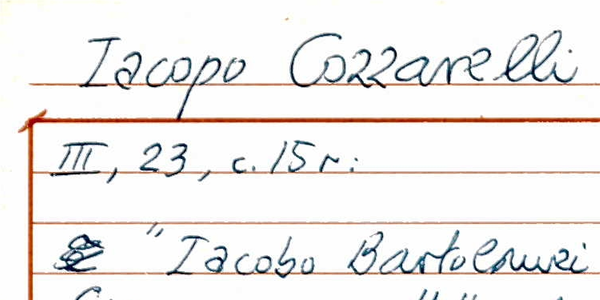 Iacopo Cozzarelli
III, 23, c. 15 r:
"Iacobo Bartolomei